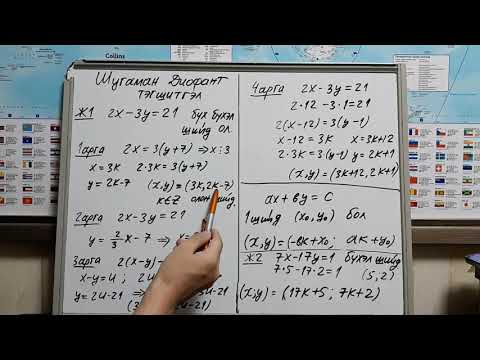 Collins
Шугаман Диофант
тэгшитгэл
Ж1 2x-3y=21 бүх бүхэл
шийд ол.
1арга 2x=3(y+7) ⇒ x⋮3
x=3k 2·3k=3(y+7)
y=2k-7 (x,y)=(3k,2k-7)
k∈Z олон шийд.
2арга 2x-3y=21
y=2/3x-7 ⇒
3арга 2(x-y)
x-y=u; 2u
y=2u-21 ⇒ 3u-21
2u-21)
4арга 2x-3y=21
2·12-3·1=21
2(x-12)=3(y-1)
x-12=3k x=3k+12
2·3k=3(y-1) y=2k+1
(x,y)=(3k+12,2k+1)
ax+вy=c
1 шийд (x₀,y₀) бол
(x,y)=(-вk+x₀; ak+y₀)
Ж2 7x-17y=1 бүхэл шийд
7·5-17·2=1 (5,2)
(x,y)=(17k+5; 7k+2)